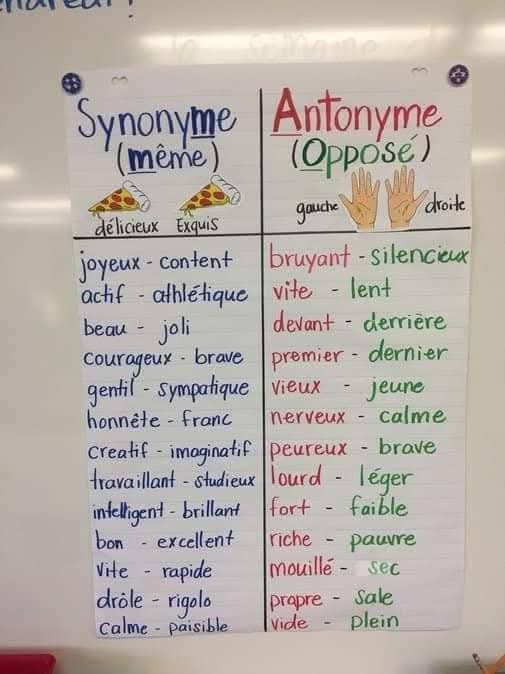 Synonyme
(même)
délicieux Exquis
joyeux - content
actif - athlétique
beau - joli
courageux - brave
gentil - sympatique
honnête - franc
creatif - imaginatif
travaillant - studieux
intelligent - brillant
bon - excellent
vite - rapide
drôle - rigolo
calme - paisible
Antonyme
(Opposé)
gauche droite
bruyant - silencieux
vite - lent
devant - derrière
premier - dernier
vieux - jeune
nerveux - calme
peureux - brave
lourd - léger
fort - faible
riche - pauvre
mouillé - sec
propre - sale
vide - plein